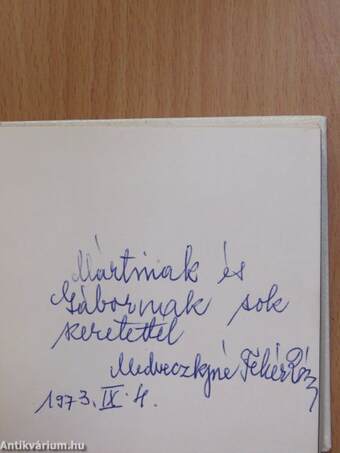 Mártinak és
Gábornak sok
szeretettel
Medveczkyné Fehér
1973. IX. 4.
Antikvárium.hu